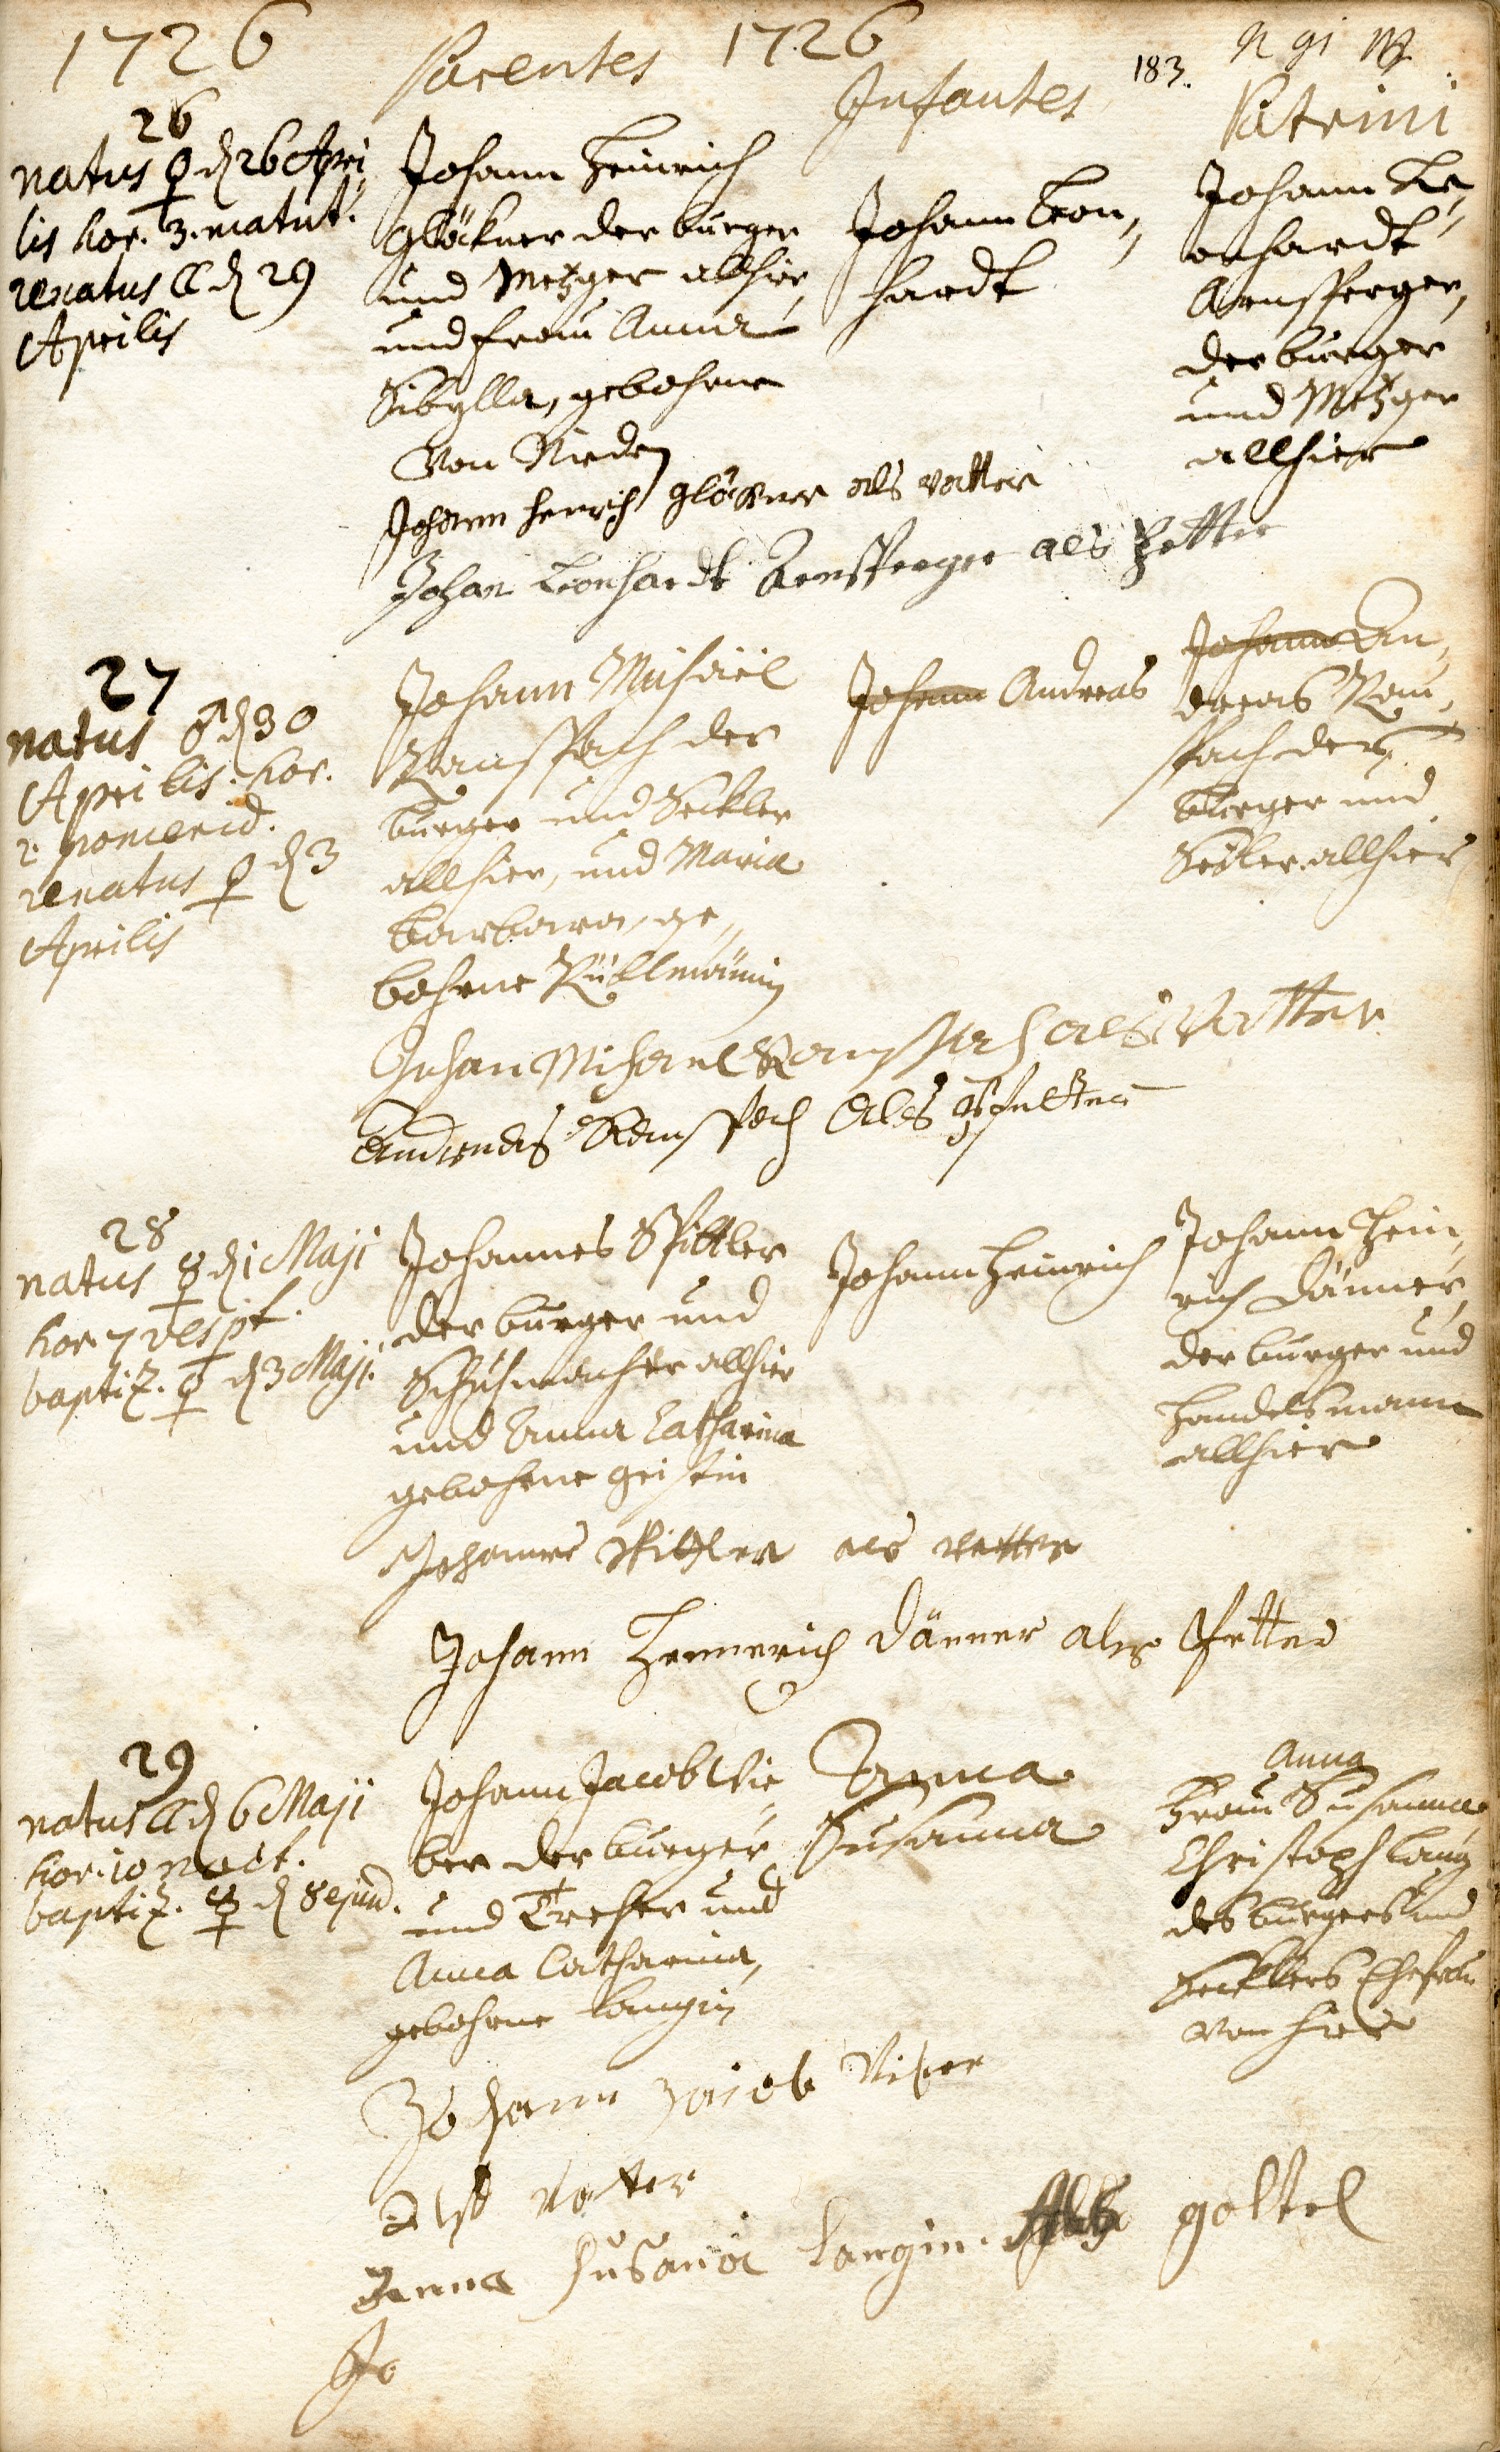 1726 Parentes 1726 Infantes 183. Patrini
26
natus ♀ d 26 Apri
lis hor. 3. matut.
renatus ☾ d 29
Aprilis
Johann Heinrich
Glöckner der burger
und Metzger allhier,
und frau Anna
Sibylla, gebohrne
Von Nieden
Johann Leon,,
hardt
Johann Le,,
onhardt
Arensperger,
der burger
und Metzger
allhier
Johann Henrich glöckner als vatter
Johan Leonhardt Arensperger als Petter
27
natus ♂ d 30
Aprilis. hor.
2. pomerid.
renatus ♀ d 3
Aprilis
Johann Michäel
Ramspach der
burger und Seckler
allhier, und Maria
barbara, ge,,
bohrne Küllmännin
Johann Andreas
Johann An,,
dreas Ram,,
spach der
burger und
Seiler allhier
Johan Michael Ramspach als Vatter
Andreas Ramspach als Pfetter
28
natus ☿ d 1 Maji
hor. 7 vespt.
baptiz. ♀ d 3 Maji.
Johannes Spittler
der burger und
Schuhmacher allhier
und Anna Catharina
gebohrne Geistin
Johann Heinrich
Johann Hein,,
rich Dänner,
der burger und
handelsmann
allhier
Johannes Spittler als vatter
Johann Hennerich Dänner als Pfetter
29
natus ☾ d 6 Maji
hor. 10 noct.
baptiz. ☿ d 8 ejusd.
Johann Jacob Wie,,
ber der burger
und Dreher und
Anna Catharina,
gebohrne Langin
Anna
Susanna
Anna
Frau Susanna,
Christoph Lang
des burgers und
Secklers Ehefrau
von hier
Johann Jacob Viber
Als Vatter
Anna Susana Langin. Als gottel
Jo